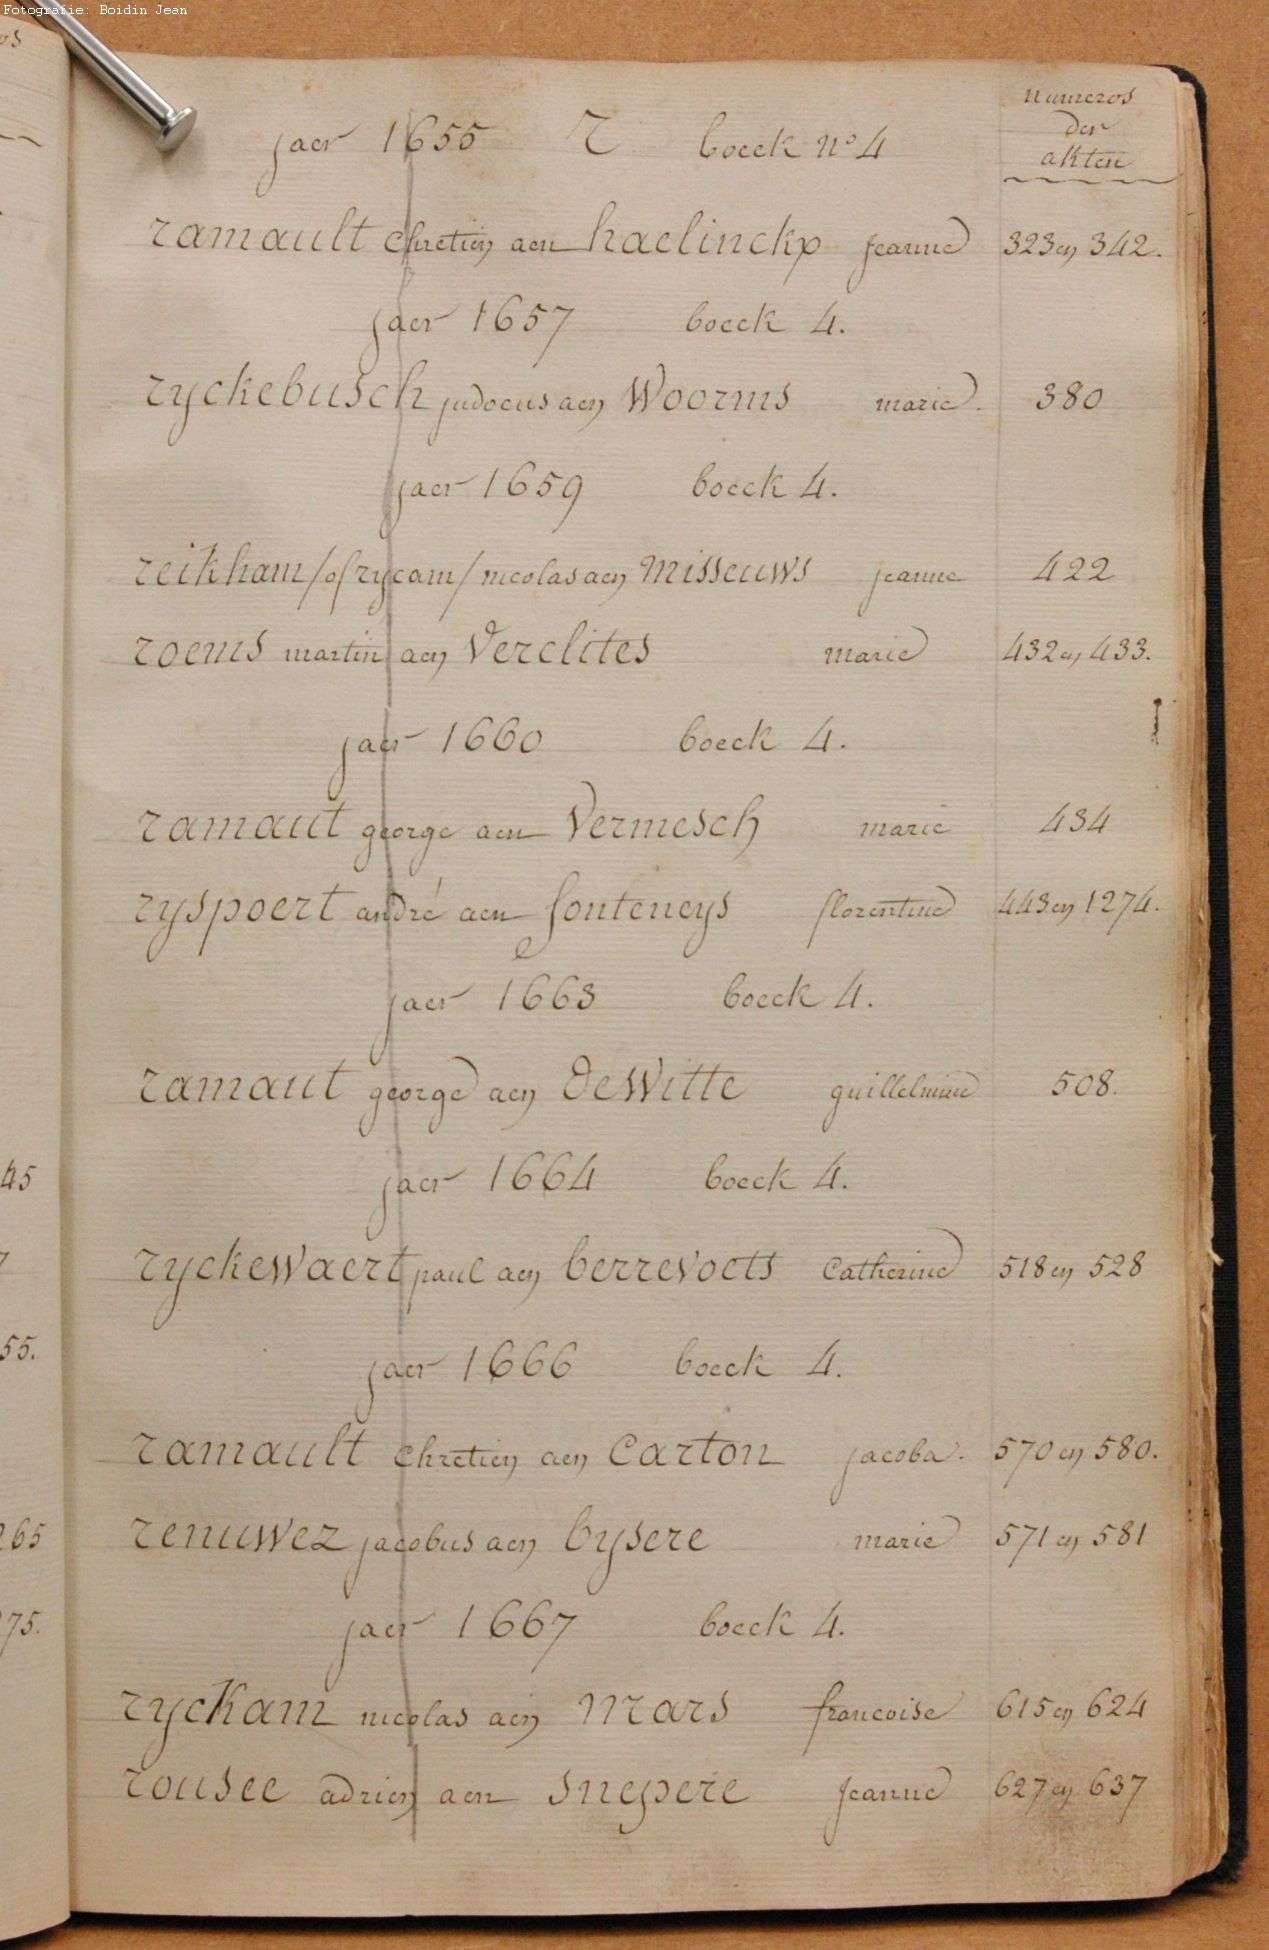 Fotografie: Boidin Jean
os
numeros
der
akten
jaer 1655 r boeck nº 4
ramault chretien aen haelinckx jeanne 323 en 342.
jaer 1657 boeck 4.
ryckebusch judocus aen Woorms marie. 380
jaer 1659 boeck 4.
reikham /of rycam/ nicolas aen misseuws jeanne 422
roems martin aen Verclites marie 432 en 433.
jaer 1660 boeck 4.
ramaut george aen Vermesch marie 434
ryspoert andré aen fonteneys florentine 443 en 1274.
jaer 1663 boeck 4.
ramaut george aen deWitte guillelmine 508.
jaer 1664 boeck 4.
45
ryckewaert paul aen berrevoets Catherine 518 en 528
55.
jaer 1666 boeck 4.
ramault chretien aen Carton jacoba. 570 en 580.
265
renuwez jacobus aen bysere marie 571 en 581
75.
jaer 1667 boeck 4.
ryckam nicolas aen mars francoise 615 en 624
rousee adrien aen snepere jeanne 627 en 637